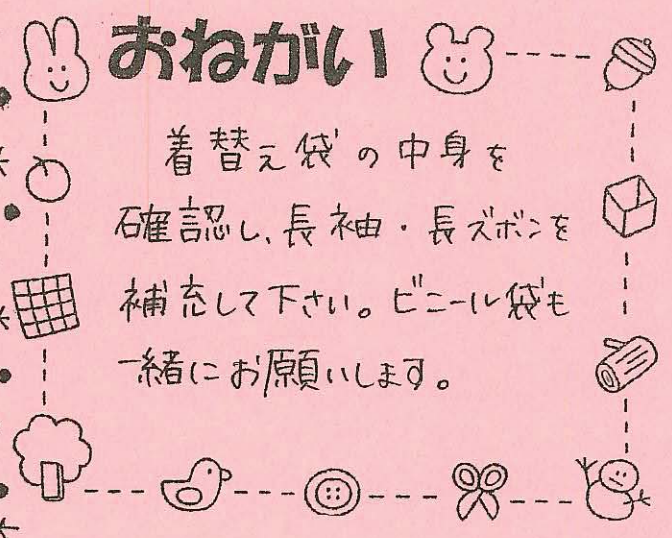 おねがい
着替え袋の中身を
確認し、長袖・長ズボンを
補充して下さい。ビニール袋も
一緒にお願いします。